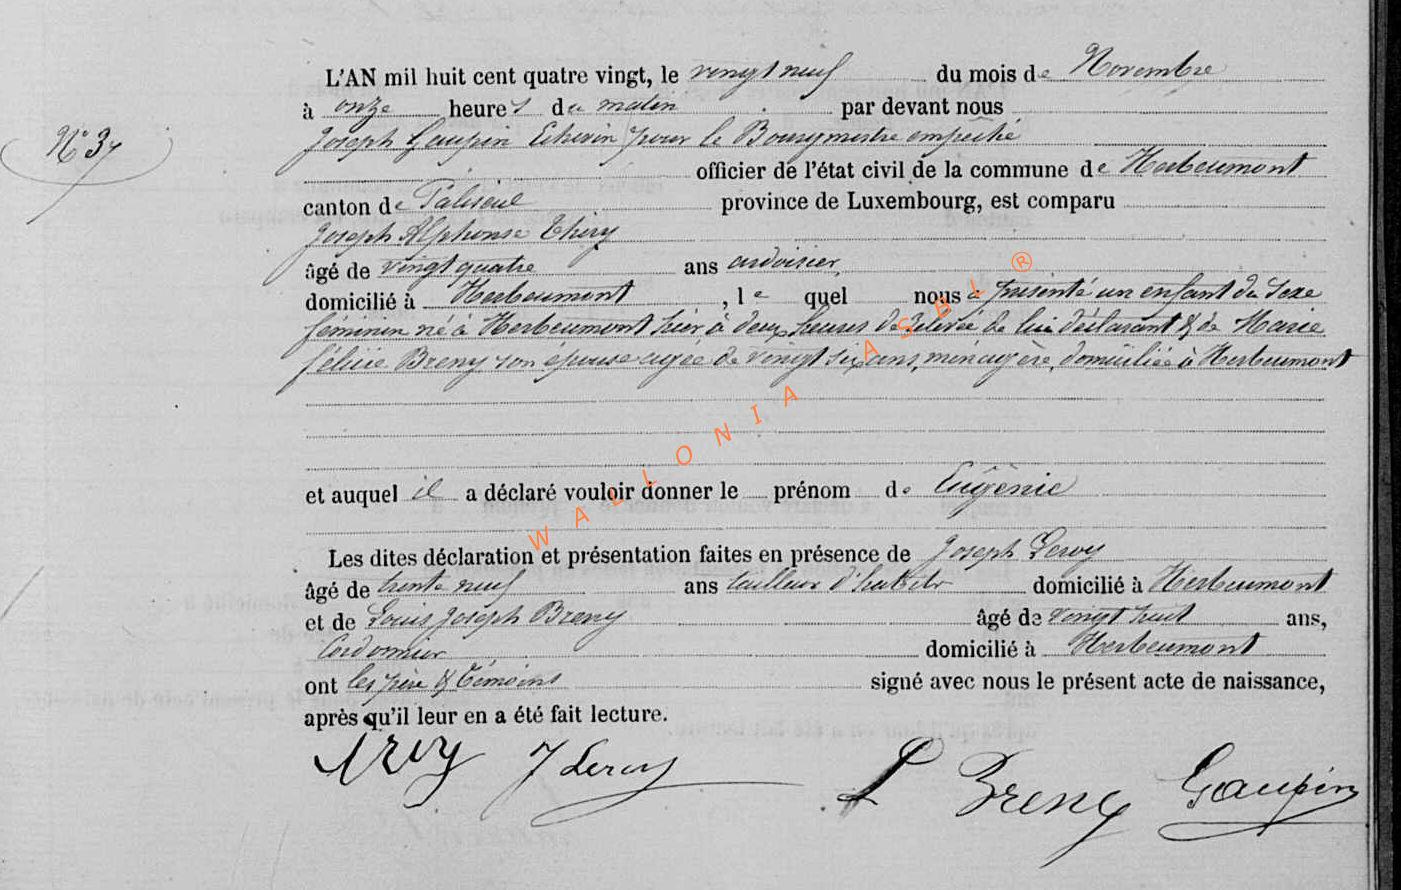 L'AN mil huit cent quatre vingt, le vingt neuf du mois de Novembre
à onze heures du matin par devant nous
Joseph Gaupin Echevin pour le Bourgmestre empêché
N° 37
officier de l'état civil de la commune de Herbeumont
canton de Paliseul province de Luxembourg, est comparu
Joseph Alphonse Thiry
âgé de vingt quatre ans ardoisier,
domicilié à Herbeumont, lequel nous a présenté un enfant du sexe
féminin né à Herbeumont hier à deux heures de relevée de lui déclarant & de Marie
félicie Breny son épouse agée de vingt six ans, ménagère, domiciliée à Herbeumont
et auquel il a déclaré vouloir donner le prénom de Eugènie
Les dites déclaration et présentation faites en présence de Joseph Leroy
âgé de trente neuf ans tailleur d'habits domicilié à Herbeumont
et de Louis Joseph Breny âgé de vingt huit ans,
Cordonnier domicilié à Herbeumont
ont les père & témoins signé avec nous le présent acte de naissance,
après qu'il leur en a été fait lecture.
J Leroy L Breny Gaupin
WALLONIA ASBL ®